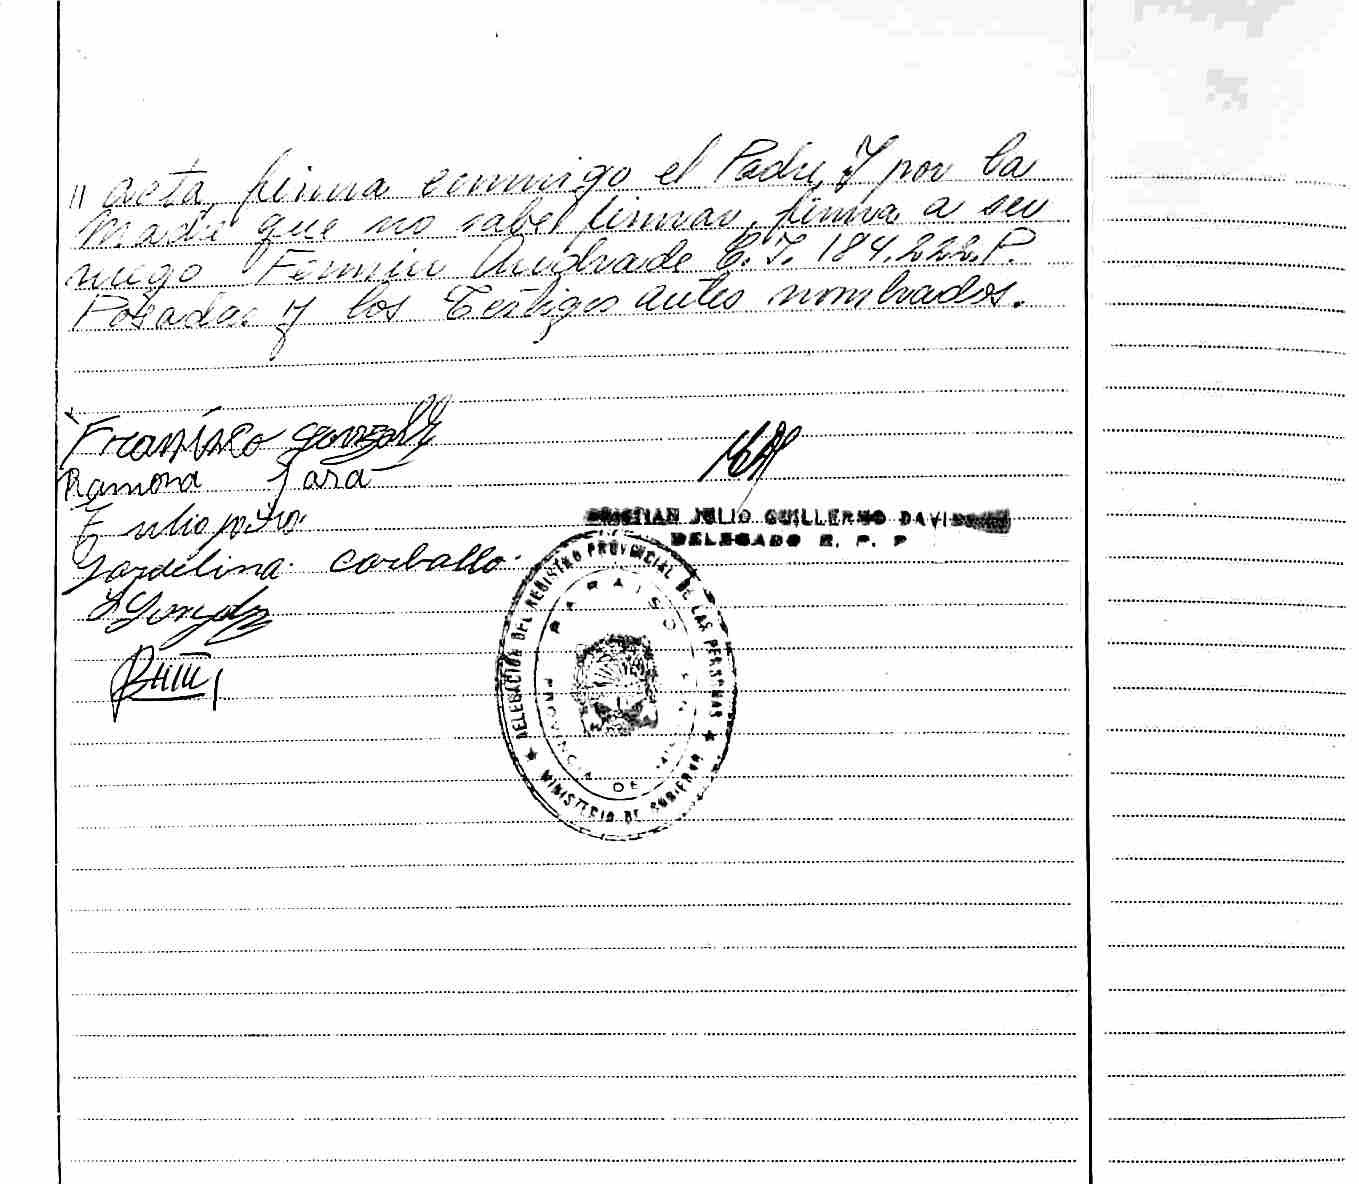 // acta, firma conmigo el Padre, y por la
Madre que no sabe firmar, firma a su
ruego Fermin Andrade C.I. 184.222.P.
Posadas y los Testigos antes nombrados.
Francisco Gonzalez
Ramona Jara
Gardelina Carballo
CRISTIAN JULIO GUILLERMO
DELEGADO R. P. P
DELEGACION DEL REGISTRO PROVINCIAL DE LAS PERSONAS
PARAISO
PROVINCIA DE
★ MINISTERIO DE GOBIERNO ★